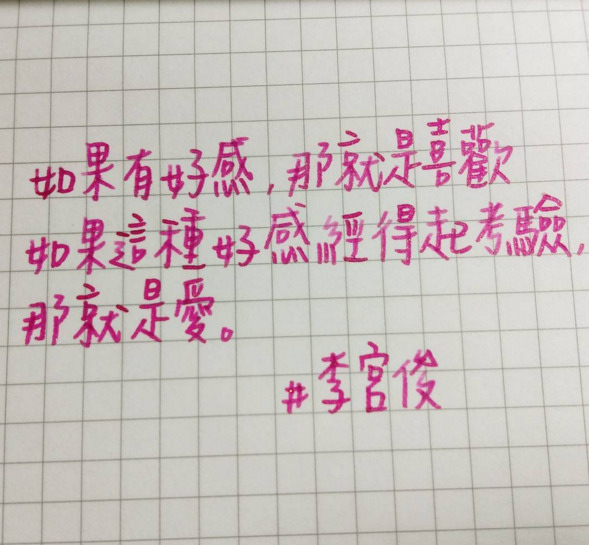 如果有好感,那就是喜歡
如果這種好感經得起考驗,
那就是愛。
#李宮俊